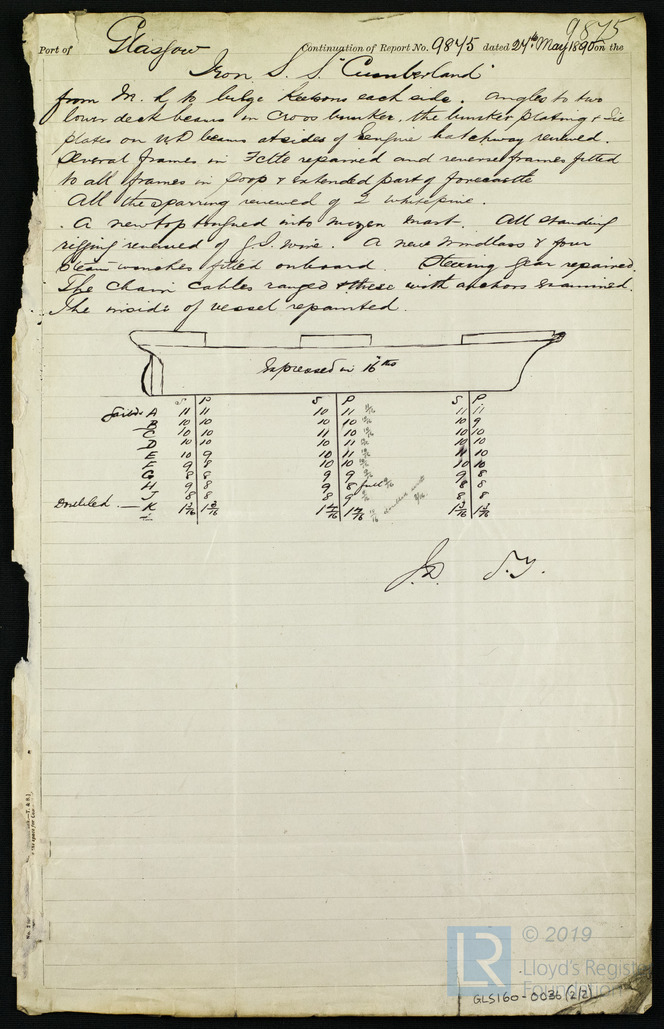 9875
Port of Glasgow Continuation of Report No. 9875 dated 27th May 1890 on the
Iron S. S. "Cumberland"
from M. L to bulge Keelsons each side. Angles to two
lower deck beams in cross bunker. the bunker plating & tie
plates on UD beams at sides of Engine hatchway renewed.
Several frames in repaired and reverse frames fitted
to all frames in poop & extended part of forecastle
All the sparring renewed of 2 white pine.
A new top tongued into mizen mast. All standing
rigging renewed of G.I. wire. A new Windlass & four
Steam winches fitted onboard. Steering gear repaired.
The Chain Cables ranged & these with anchors examined.
The inside of vessel repainted.
Expressed in 16ths
S P S P S P
A 11 11 10 11 11 11
B 10 10 10 10 10 9
C 10 10 11 10 10 10
D 10 10 10 11 10 10
E 10 9 10 11 11 10
F 9 8 10 10 10 10
G 8 8 9 9 9 8
H 9 8 9 8 full 8 8
J 8 8 8 9 8 8
Doubled. — K
J.D. S.J.
© 2019
LR
Lloyd's Register
Foundation
GLS160-0036 (2/2)